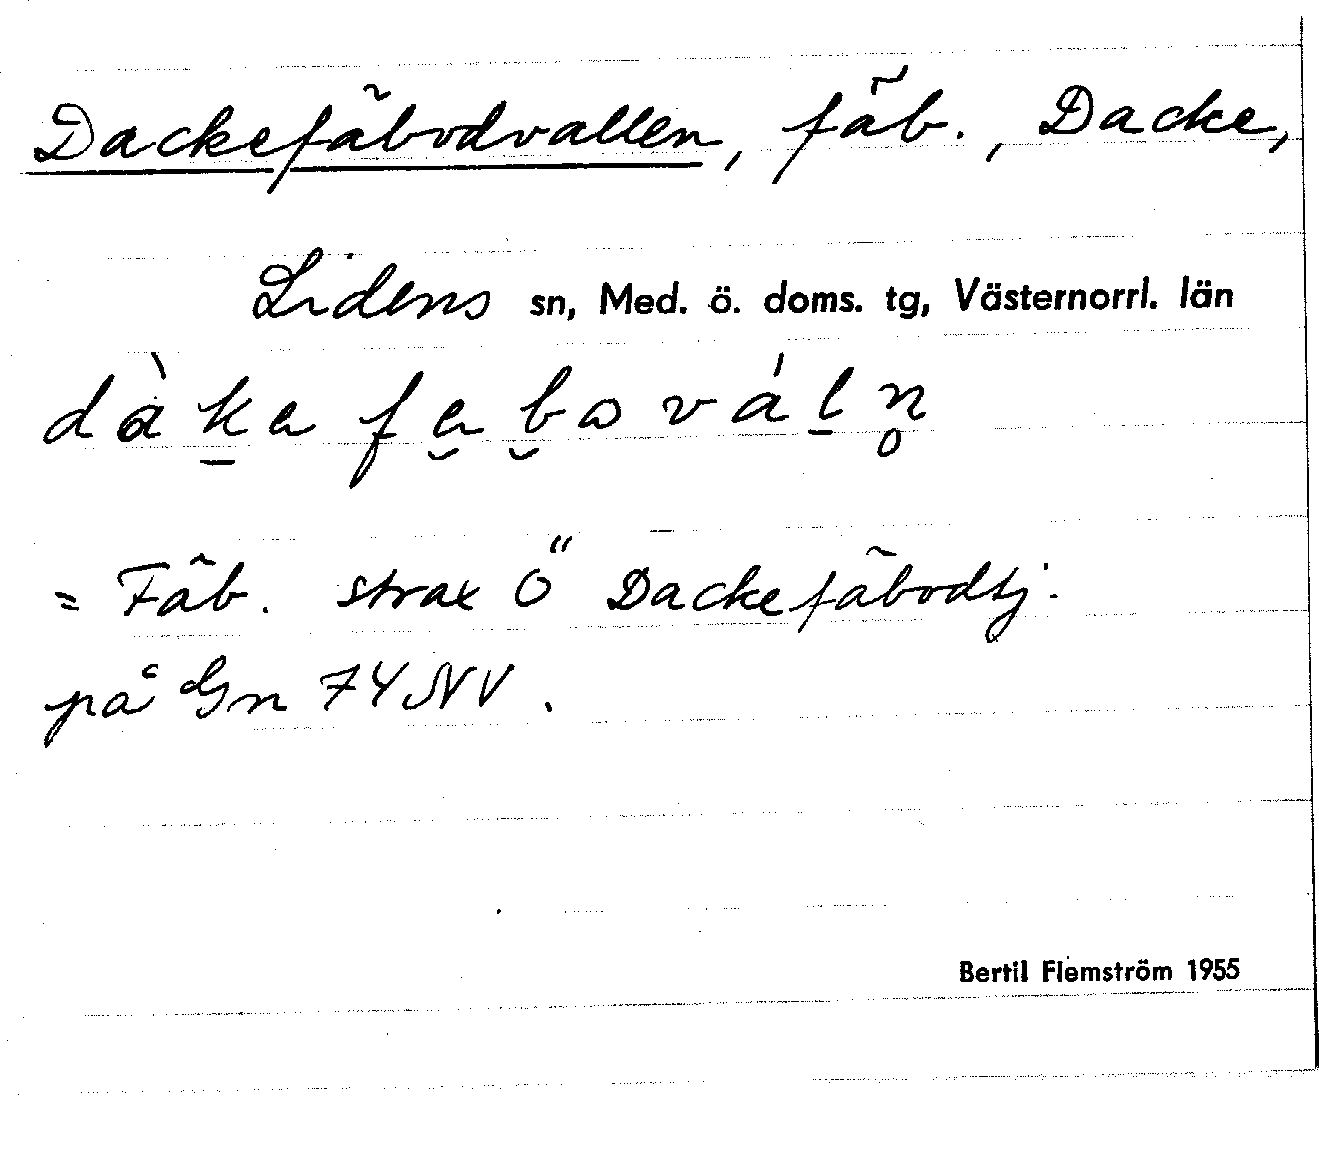 Dackefäbodvallen, fäb., Dacke,
Lidens sn, Med. ö. doms. tg, Västernorrl. län
dàk̲a fa̮b̮ωvál̲n̥
= Fäb. strax Ö Dackefäbodtj.
på Gn 74 NV.
Bertil Flemström 1955